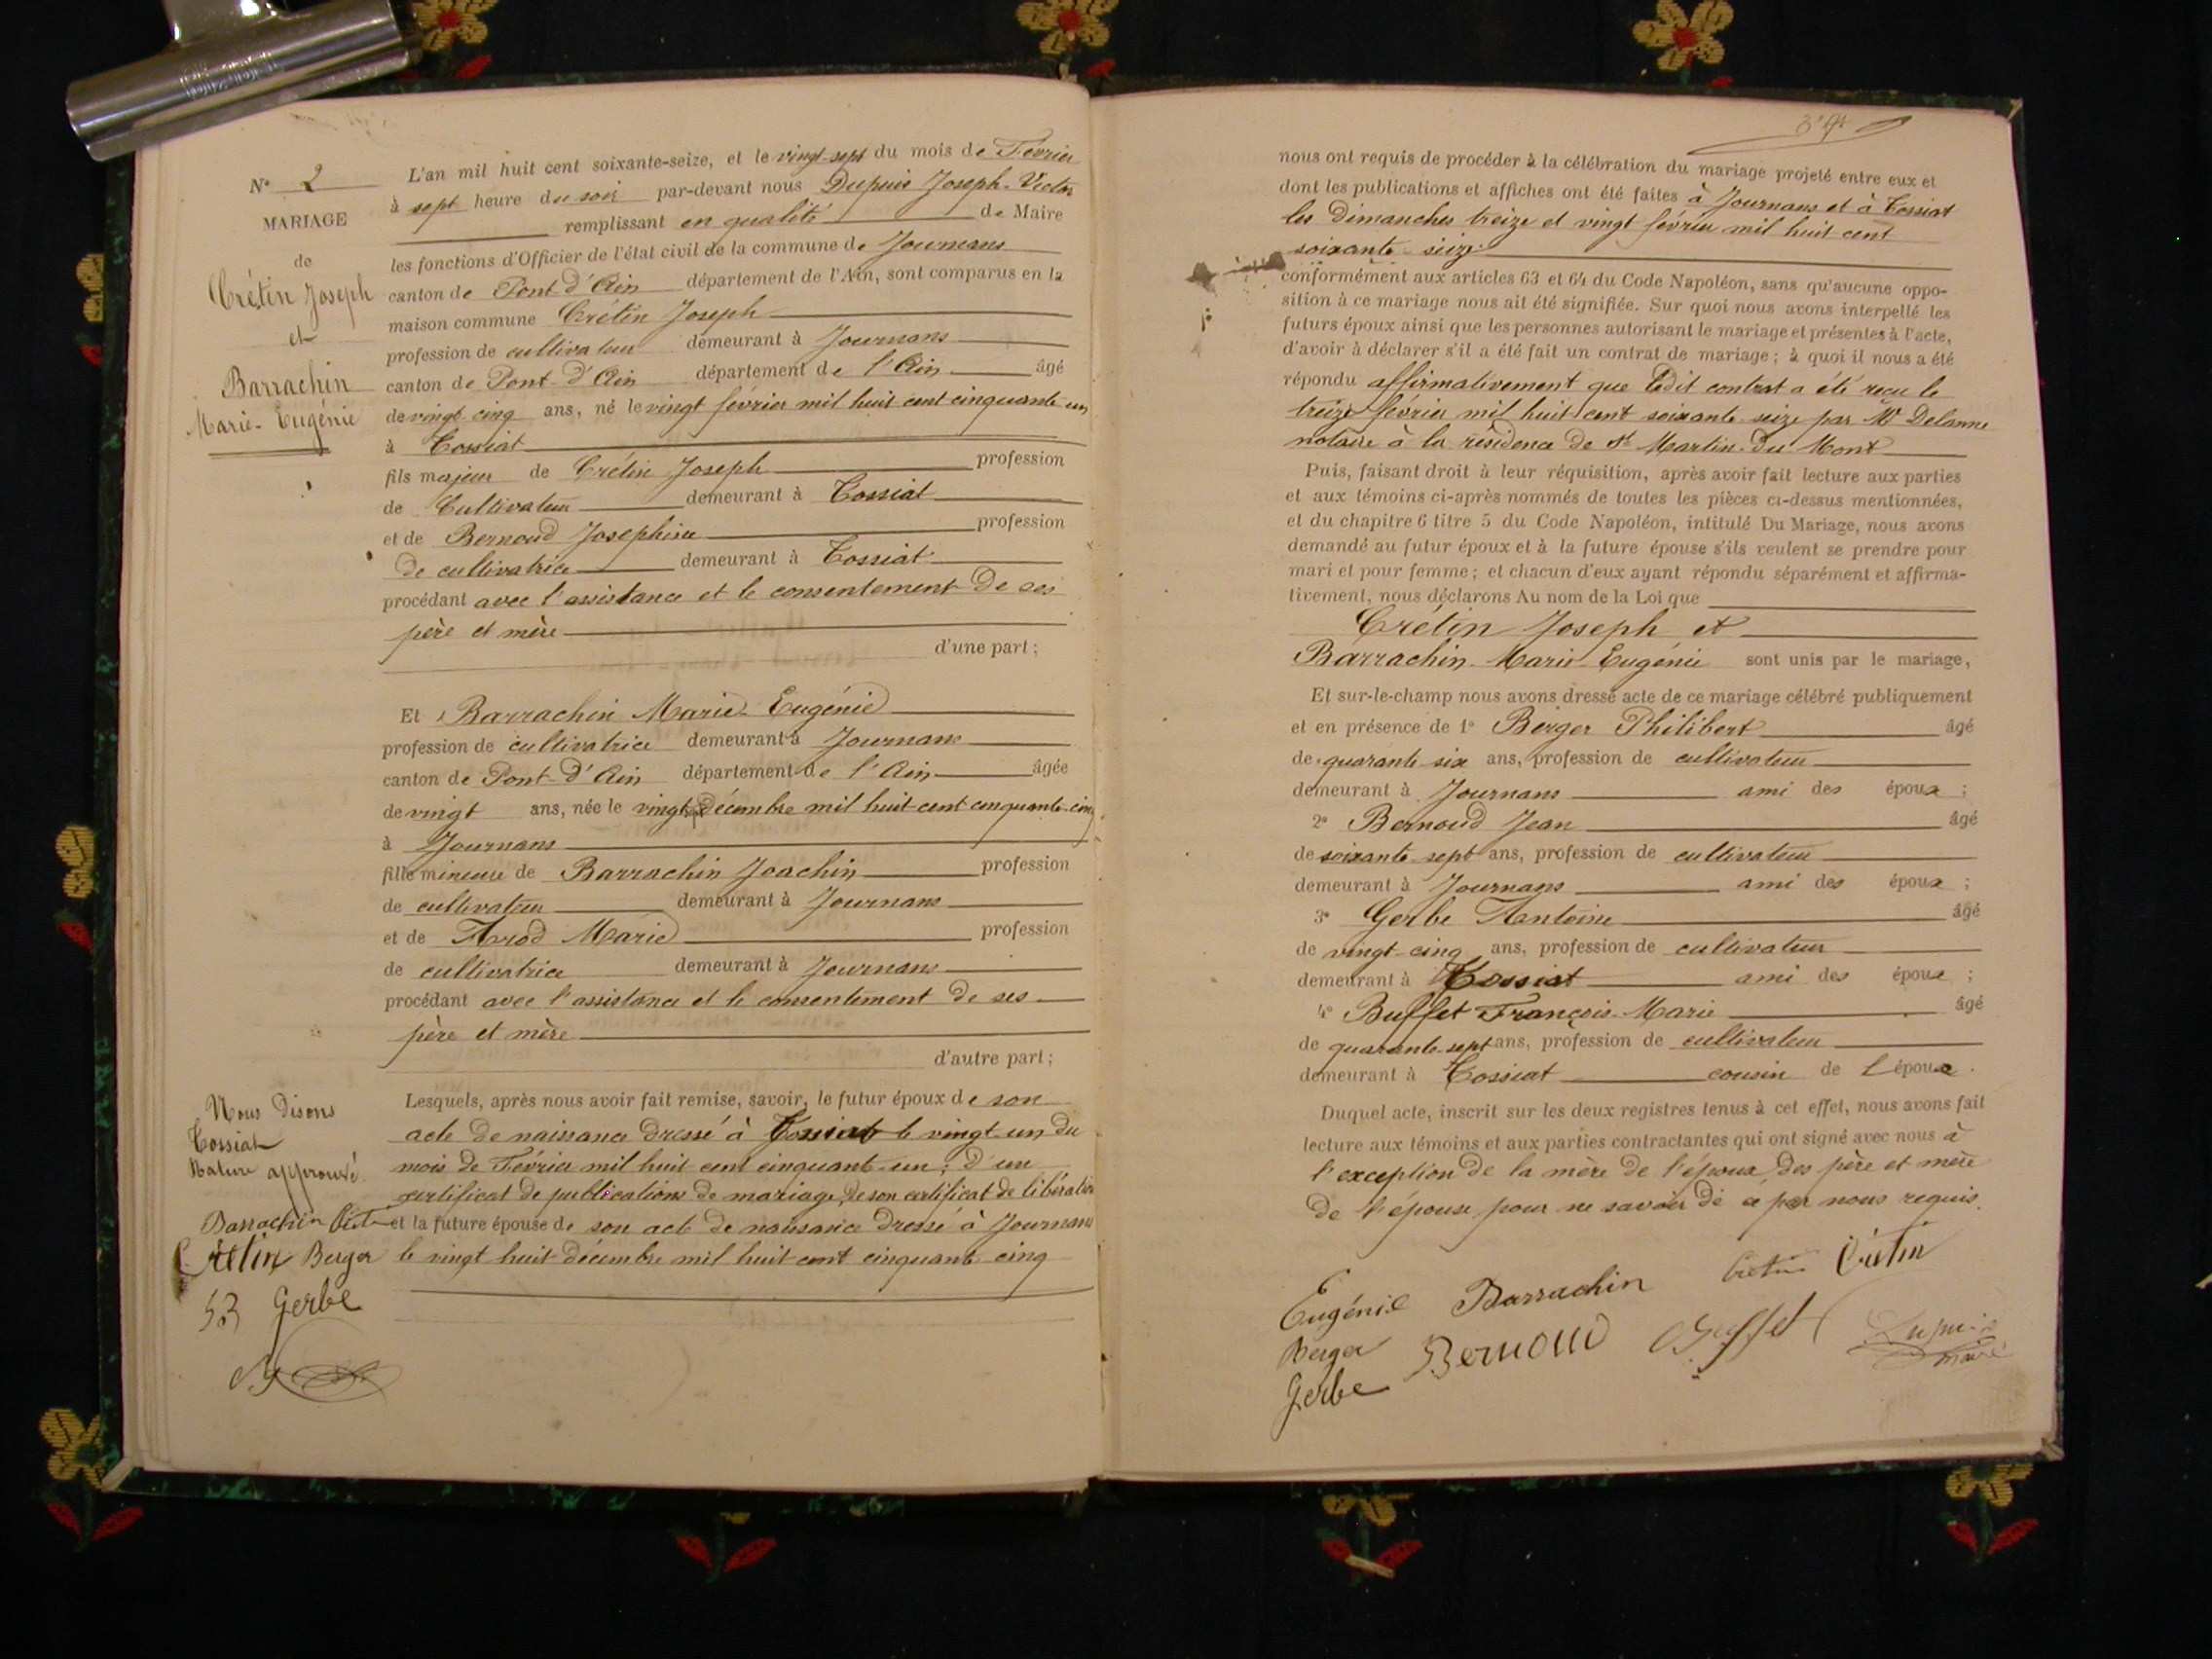 N° 2
MARIAGE
de
Crétin Joseph
et
Barrachin
Marie-Eugénie
L'an mil huit cent soixante-seize, et le vingt-sept du mois de Février
à sept heure du soir par-devant nous Dupuis Joseph-Victor
remplissant en qualité de Maire
les fonctions d'Officier de l'état civil de la commune de Journans
canton de Pont-d'Ain département de l'Ain, sont comparus en la
maison commune Crétin Joseph
profession de cultivateur demeurant à Journans
canton de Pont-d'Ain département de l'Ain âgé
de vingt-cinq ans, né le vingt février mil huit cent cinquante un
à Tossiat
fils majeur de Crétin Joseph profession
de Cultivateur demeurant à Tossiat
et de Bernoud Josephine profession
de cultivatrice demeurant à Tossiat
procédant avec l'assistance et le consentement de ses
père et mère
d'une part;
Et Barrachin Marie-Eugénie
profession de cultivatrice demeurant à Journans
canton de Pont-d'Ain département de l'Ain âgée
de vingt ans, née le vingt sept Décembre mil huit cent cinquante-cinq
à Journans
fille mineure de Barrachin Joachin profession
de cultivateur demeurant à Journans
et de Arod Marie profession
de cultivatrice demeurant à Journans
procédant avec l'assistance et le consentement de ses
père et mère
d'autre part;
Lesquels, après nous avoir fait remise, savoir, le futur époux de son
acte de naissance dressé à Tossiat le vingt-un du
mois de Février mil huit cent cinquante-un; d'un
certificat de publications de mariage, de son certificat de libération
et la future épouse de son acte de naissance dressé à Journans
le vingt huit décembre mil huit cent cinquante cinq
Nous disons
Tossiat
Rature approuvé
Barrachin Crétin
Crétin Berger
Gerbe
nous ont requis de procéder à la célébration du mariage projeté entre eux et
dont les publications et affiches ont été faites à Journans et à Tossiat
les Dimanches treize et vingt février mil huit cent
soixante-seize
conformément aux articles 63 et 64 du Code Napoléon, sans qu'aucune oppo-
sition à ce mariage nous ait été signifiée. Sur quoi nous avons interpellé les
futurs époux ainsi que les personnes autorisant le mariage et présentes à l'acte,
d'avoir à déclarer s'il a été fait un contrat de mariage; à quoi il nous a été
répondu affirmativement que ledit contrat a été reçu le
treize février mil huit cent soixante seize par Me Delanne
notaire à la résidence de St Martin-du-Mont
Puis, faisant droit à leur réquisition, après avoir fait lecture aux parties
et aux témoins ci-après nommés de toutes les pièces ci-dessus mentionnées,
et du chapitre 6 titre 5 du Code Napoléon, intitulé Du Mariage, nous avons
demandé au futur époux et à la future épouse s'ils veulent se prendre pour
mari et pour femme; et chacun d'eux ayant répondu séparément et affirma-
tivement, nous déclarons Au nom de la Loi que
Crétin Joseph et
Barrachin Marie-Eugénie sont unis par le mariage,
Et sur-le-champ nous avons dressé acte de ce mariage célébré publiquement
et en présence de 1° Berger Philibert âgé
de quarante six ans, profession de cultivateur
demeurant à Journans ami des époux;
2° Bernoud Jean âgé
de soixante sept ans, profession de cultivateur
demeurant à Journans ami des époux;
3° Gerbe Antoine âgé
de vingt-cinq ans, profession de cultivateur
demeurant à Tossiat ami des époux;
4° Buffet François-Marie âgé
de quarante-sept ans, profession de cultivateur
demeurant à Tossiat cousin de l'époux.
Duquel acte, inscrit sur les deux registres tenus à cet effet, nous avons fait
lecture aux témoins et aux parties contractantes qui ont signé avec nous à
l'exception de la mère de l'époux, des père et mère
de l'épouse pour ne savoir de ce par nous requis.
Eugénie Barrachin Cretin Crétin
Berger Bernoud Buffet Dupuis
maire
Gerbe